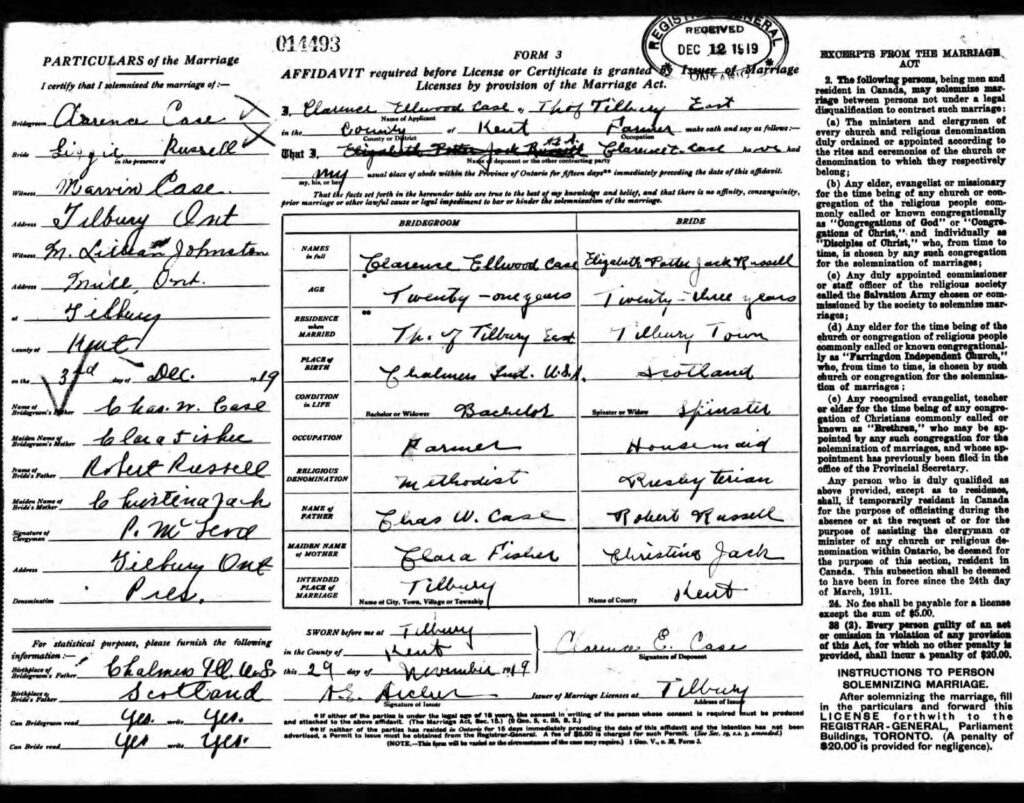 014493
REGISTRAR GENERAL
RECEIVED
DEC 12 1919
ONTARIO
PARTICULARS of the Marriage
I certify that I solemnized the marriage of:—
Bridegroom Clarence Case
Bride Lizzie Russell
in the presence of
Witness Marvin Case
Address Tilbury Ont
Witness M. Lillian Johnston
Address Ont.
at Tilbury
County of Kent
on the 3rd day of Dec. 1919
Name of Bridegroom's Father Chas. W. Case
Maiden Name of Bridegroom's Mother Clara Fisher
Name of Bride's Father Robert Russell
Maiden Name of Bride's Mother Christina Jack
Signature of Clergyman P. McLeod
Address Tilbury Ont
Denomination Pres.
For statistical purposes, please furnish the following
information:—
Birthplace of Bridegroom's Father Chalmers Ill U.S.
Birthplace of Bride's Father Scotland
Can Bridegroom read Yes. write Yes.
Can Bride read Yes write Yes.
FORM 3
AFFIDAVIT required before License or Certificate is granted by Issuer of Marriage
Licenses by provision of the Marriage Act.
I, Clarence Ellwood Case, Tp of Tilbury East
Name of Applicant
in the County of Kent Farmer make oath and say as follows:—
County or District Occupation
That I, Elizabeth Potter Jack Russell Clarence E. Case have had
Name of deponent or the other contracting party
my usual place of abode within the Province of Ontario for fifteen days** immediately preceding the date of this affidavit.
my, his, or her
That the facts set forth in the hereunder table are true to the best of my knowledge and belief, and that there is no affinity, consanguinity,
prior marriage or other lawful cause or legal impediment to bar or hinder the solemnization of the marriage.
BRIDEGROOM BRIDE
NAMES in full Clarence Ellwood Case Elizabeth Potter Jack Russell
AGE Twenty-one years Twenty-three years
RESIDENCE when MARRIED ** Tp. of Tilbury East Tilbury Town
PLACE OF BIRTH Chalmers Ind. U.S.A. Scotland
CONDITION in LIFE Bachelor or Widower Bachelor Spinster or Widow Spinster
OCCUPATION Farmer Housemaid
RELIGIOUS DENOMINATION Methodist Presbyterian
NAME OF FATHER Chas W. Case Robert Russell
MAIDEN NAME OF MOTHER Clara Fisher Christina Jack
INTENDED PLACE OF MARRIAGE Tilbury Kent
Name of City, Town, Village or Township Name of County
SWORN before me at Tilbury
in the County of Kent
Clarence E. Case
Signature of Deponent
this 29 day of November 1919
A.E. Archer Issuer of Marriage Licenses at Tilbury
Signature of Issuer Address of Issuer
*If either of the parties is under the legal age of 18 years, the consent in writing of the person whose consent is required must be produced
and attached to the above affidavit. (The Marriage Act, Sec. 15.)
**If neither of the parties has resided in Ontario for 15 days immediately preceding the date of this affidavit and the intention has not been
advertised, a Permit to issue must be obtained from the Registrar-General. A fee of $5.00 is charged for such Permit.
(NOTE.—This form will be varied as the circumstances of the case may require.)
EXCERPTS FROM THE MARRIAGE
ACT
2. The following persons, being men and
resident in Canada, may solemnize mar-
riage between persons not under a legal
disqualification to contract such marriage:
(a) The ministers and clergymen of
every church and religious denomination
duly ordained or appointed according to
the rites and ceremonies of the church or
denomination to which they respectively
belong;
(b) Any elder, evangelist or missionary
for the time being of any church or con-
gregation of the religious people com-
monly called or known congregationally
as "Congregations of God" or "Congre-
gations of Christ," and individually as
"Disciples of Christ," who, from time to
time, is chosen by any such congregation
for the solemnization of marriages;
(c) Any duly appointed commissioner
or staff officer of the religious society
called the Salvation Army chosen or com-
missioned by the society to solemnize mar-
riages;
(d) Any elder for the time being of the
church or congregation of religious people
commonly called or known congregational-
ly as "Farringdon Independent Church,"
who, from time to time, is chosen by such
church or congregation for the solemniza-
tion of marriages;
(e) Any recognized evangelist, teacher
or elder for the time being of any congre-
gation of Christians commonly called or
known as "Brethren," who may be ap-
pointed by any such congregation for the
solemnization of marriages, and whose ap-
pointment has previously been filed in the
office of the Provincial Secretary.
Any person who is duly qualified as
above provided, except as to residence,
shall, if temporarily resident in Canada,
for the purpose of officiating during the
absence or at the request of or for the
purpose of assisting the clergyman or
minister of any church or religious de-
nomination within Ontario, be deemed for
the purpose of this section, resident in
Canada. This subsection shall be deemed
to have been in force since the 24th day
of March, 1911.
24. No fee shall be payable for a license
except the sum of $5.00.
38 (2). Every person guilty of an act
or omission in violation of any provision
of this Act, for which no other penalty is
provided, shall incur a penalty of $20.00.
INSTRUCTIONS TO PERSON
SOLEMNIZING MARRIAGE.
After solemnizing the marriage, fill
in the particulars and forward this
LICENSE forthwith to the
REGISTRAR-GENERAL, Parliament
Buildings, TORONTO. (A penalty of
$20.00 is provided for negligence).